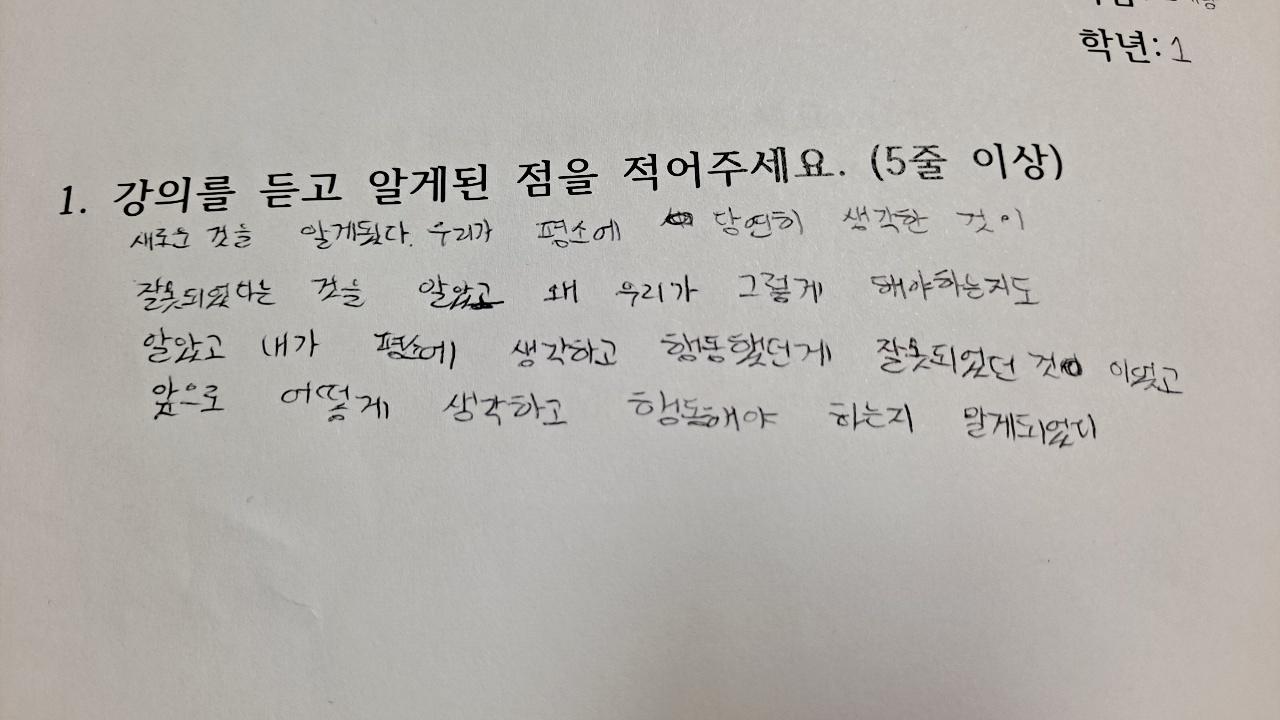 학년: 1
1. 강의를 듣고 알게된 점을 적어주세요. (5줄 이상)
새로운 것을 알게됬다. 우리가 평소에 당연히 생각한 것이
잘못되었다는 것을 알았고 왜 우리가 그렇게 해야하는지도
알았고 내가 평소에 생각하고 행동했던게 잘못되었던 것 이였고
앞으로 어떻게 생각하고 행동해야 하는지 알게되었다